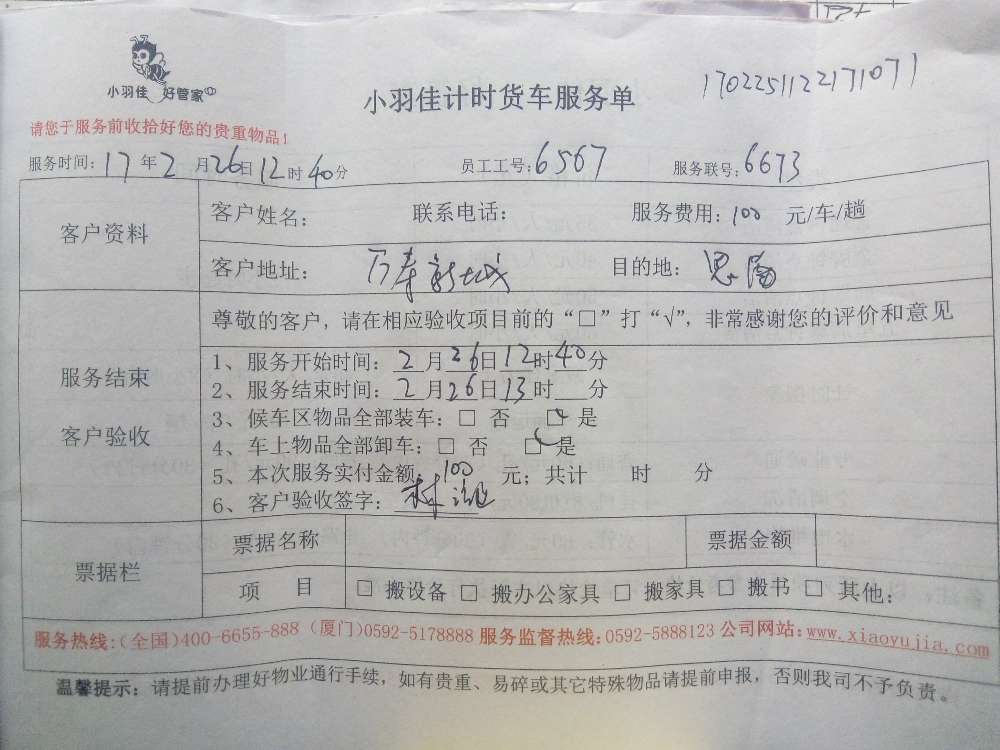 小羽佳 好管家
小羽佳计时货车服务单
1702251122171071
请您于服务前收拾好您的贵重物品！
服务时间：17年2月26日12时40分 员工工号：6567 服务联号：6673
客户资料
客户姓名： 联系电话： 服务费用：100 元/车/趟
客户地址：万寿新城 目的地：思
服务结束
客户验收
尊敬的客户，请在相应验收项目前的“□”打“√”，非常感谢您的评价和意见
1、服务开始时间：2月26日12时40分
2、服务结束时间：2月26日13时 分
3、候车区物品全部装车：□ 否 □ 是
4、车上物品全部卸车：□ 否 □ 是
5、本次服务实付金额：100 元；共计 时 分
6、客户验收签字：林
票据栏
票据名称 票据金额
项 目 □ 搬设备 □ 搬办公家具 □ 搬家具 □ 搬书 □ 其他：
服务热线：（全国）400-6655-888（厦门）0592-5178888 服务监督热线：0592-5888123 公司网站：www.xiaoyujia.com
温馨提示：请提前办理好物业通行手续，如有贵重、易碎或其它特殊物品请提前申报，否则我司不予负责。